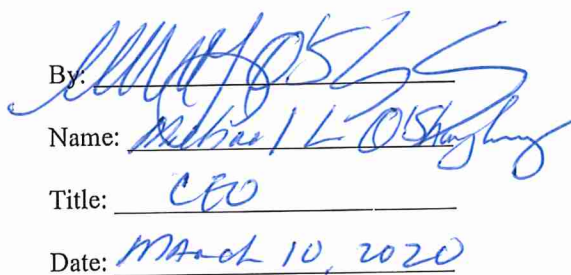 By:
Name: Michael L O'Shaughnessy
Title: CEO
Date: March 10, 2020